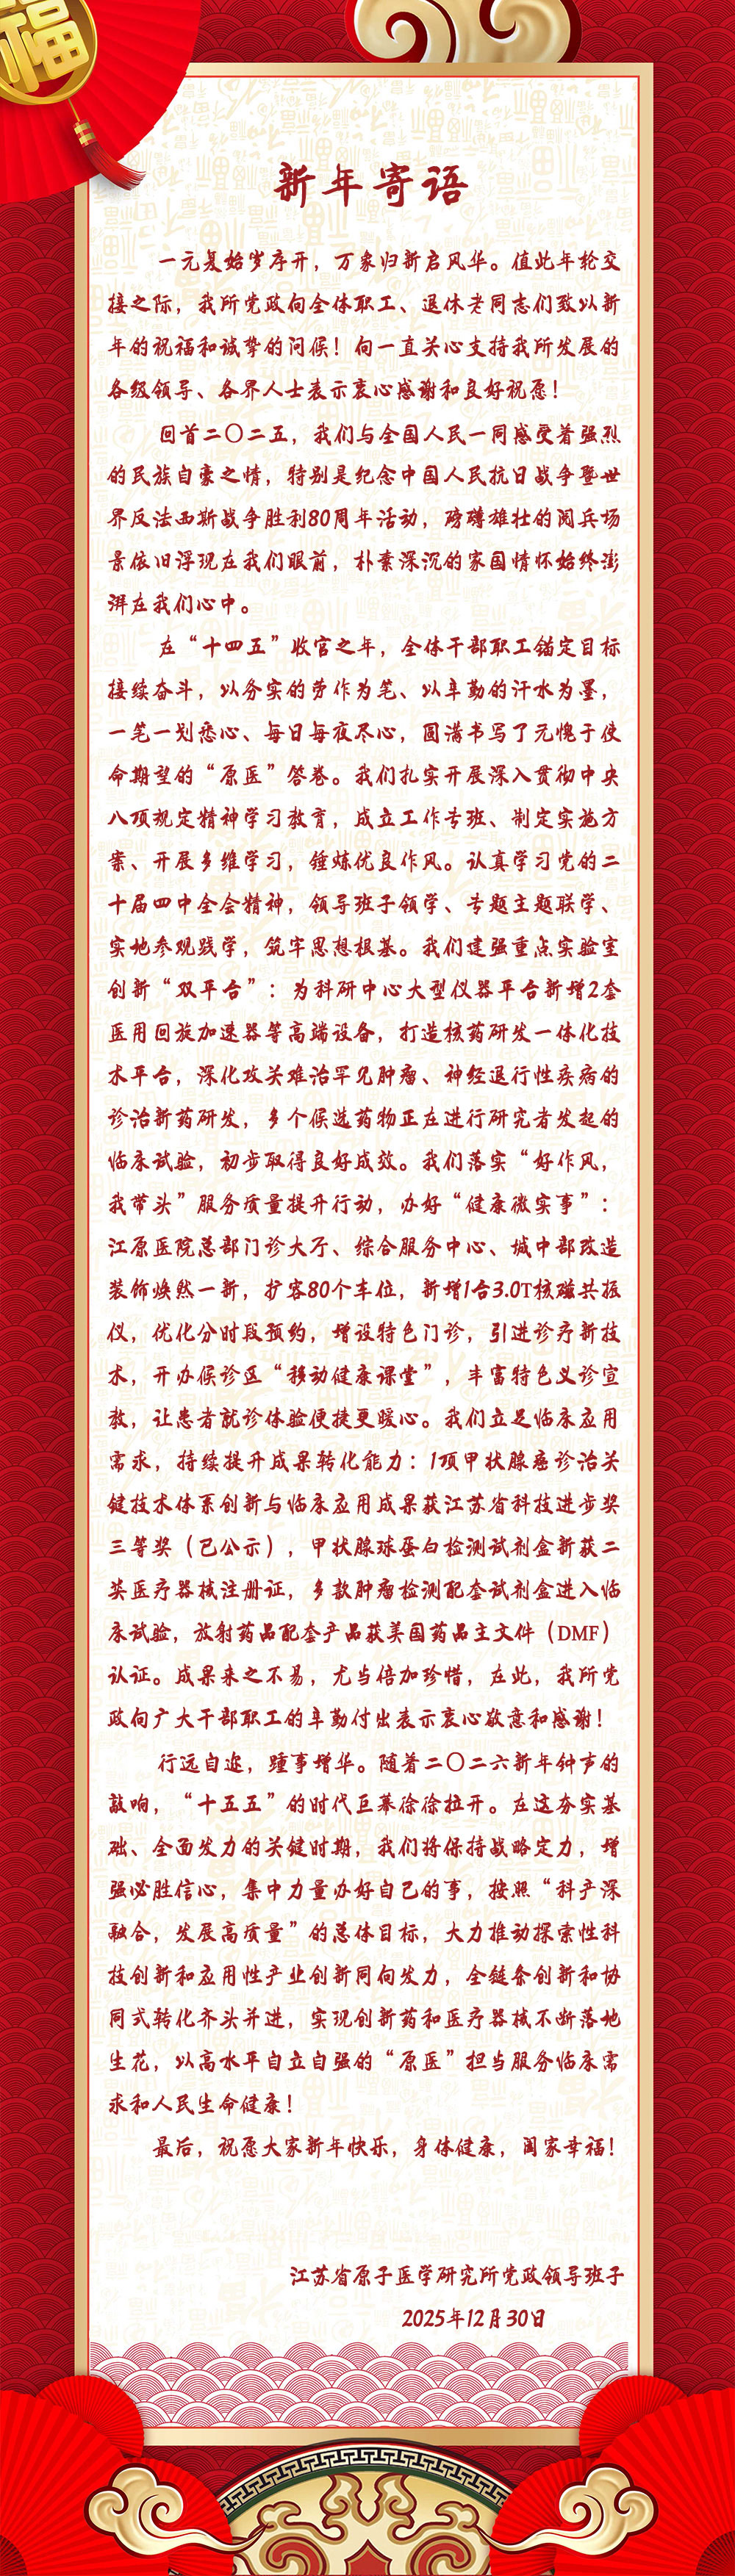 福
新年寄语
一元复始岁序开，万象归新启风华。值此年轮交
接之际，我所党政向全体职工、退休老同志们致以新
年的祝福和诚挚的问候！向一直关心支持我所发展的
各级领导、各界人士表示衷心感谢和良好祝愿！
回首二〇二五，我们与全国人民一同感受着强烈
的民族自豪之情，特别是纪念中国人民抗日战争暨世
界反法西斯战争胜利80周年活动，磅礴雄壮的阅兵场
景依旧浮现在我们眼前，朴素深沉的家国情怀始终澎
湃在我们心中。
在“十四五”收官之年，全体干部职工锚定目标
接续奋斗，以务实的劳作为笔、以辛勤的汗水为墨，
一笔一划悉心、每日每夜尽心，圆满书写了无愧于使
命期望的“原医”答卷。我们扎实开展深入贯彻中央
八项规定精神学习教育，成立工作专班、制定实施方
案、开展多维学习，锤炼优良作风。认真学习党的二
十届四中全会精神，领导班子领学、专题主题联学、
实地参观践学，筑牢思想根基。我们建强重点实验室
创新“双平台”：为科研中心大型仪器平台新增2套
医用回旋加速器等高端设备，打造核药研发一体化技
术平台，深化攻关难治罕见肿瘤、神经退行性疾病的
诊治新药研发，多个候选药物正在进行研究者发起的
临床试验，初步取得良好成效。我们落实“好作风，
我带头”服务质量提升行动，办好“健康微实事”：
江原医院总部门诊大厅、综合服务中心、城中部改造
装饰焕然一新，扩容80个车位，新增1台3.0T核磁共振
仪，优化分时段预约，增设特色门诊，引进诊疗新技
术，开办候诊区“移动健康课堂”，丰富特色义诊宣
教，让患者就诊体验便捷更暖心。我们立足临床应用
需求，持续提升成果转化能力：1项甲状腺癌诊治关
键技术体系创新与临床应用成果获江苏省科技进步奖
三等奖（已公示），甲状腺球蛋白检测试剂盒新获二
类医疗器械注册证，多款肿瘤检测配套试剂盒进入临
床试验，放射药品配套产品获美国药品主文件（DMF）
认证。成果来之不易，尤当倍加珍惜，在此，我所党
政向广大干部职工的辛勤付出表示衷心敬意和感谢！
行远自迩，踵事增华。随着二〇二六新年钟声的
敲响，“十五五”的时代巨幕徐徐拉开。在这夯实基
础、全面发力的关键时期，我们将保持战略定力，增
强必胜信心，集中力量办好自己的事，按照“科产深
融合，发展高质量”的总体目标，大力推动探索性科
技创新和应用性产业创新同向发力，全链条创新和协
同式转化齐头并进，实现创新药和医疗器械不断落地
生花，以高水平自立自强的“原医”担当服务临床需
求和人民生命健康！
最后，祝愿大家新年快乐，身体健康，阖家幸福！
江苏省原子医学研究所党政领导班子
2025年12月30日